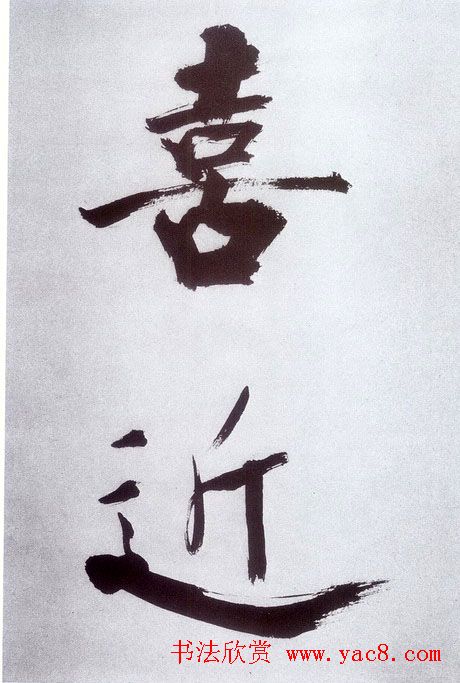 喜
近
书法欣赏 www.yac8.com